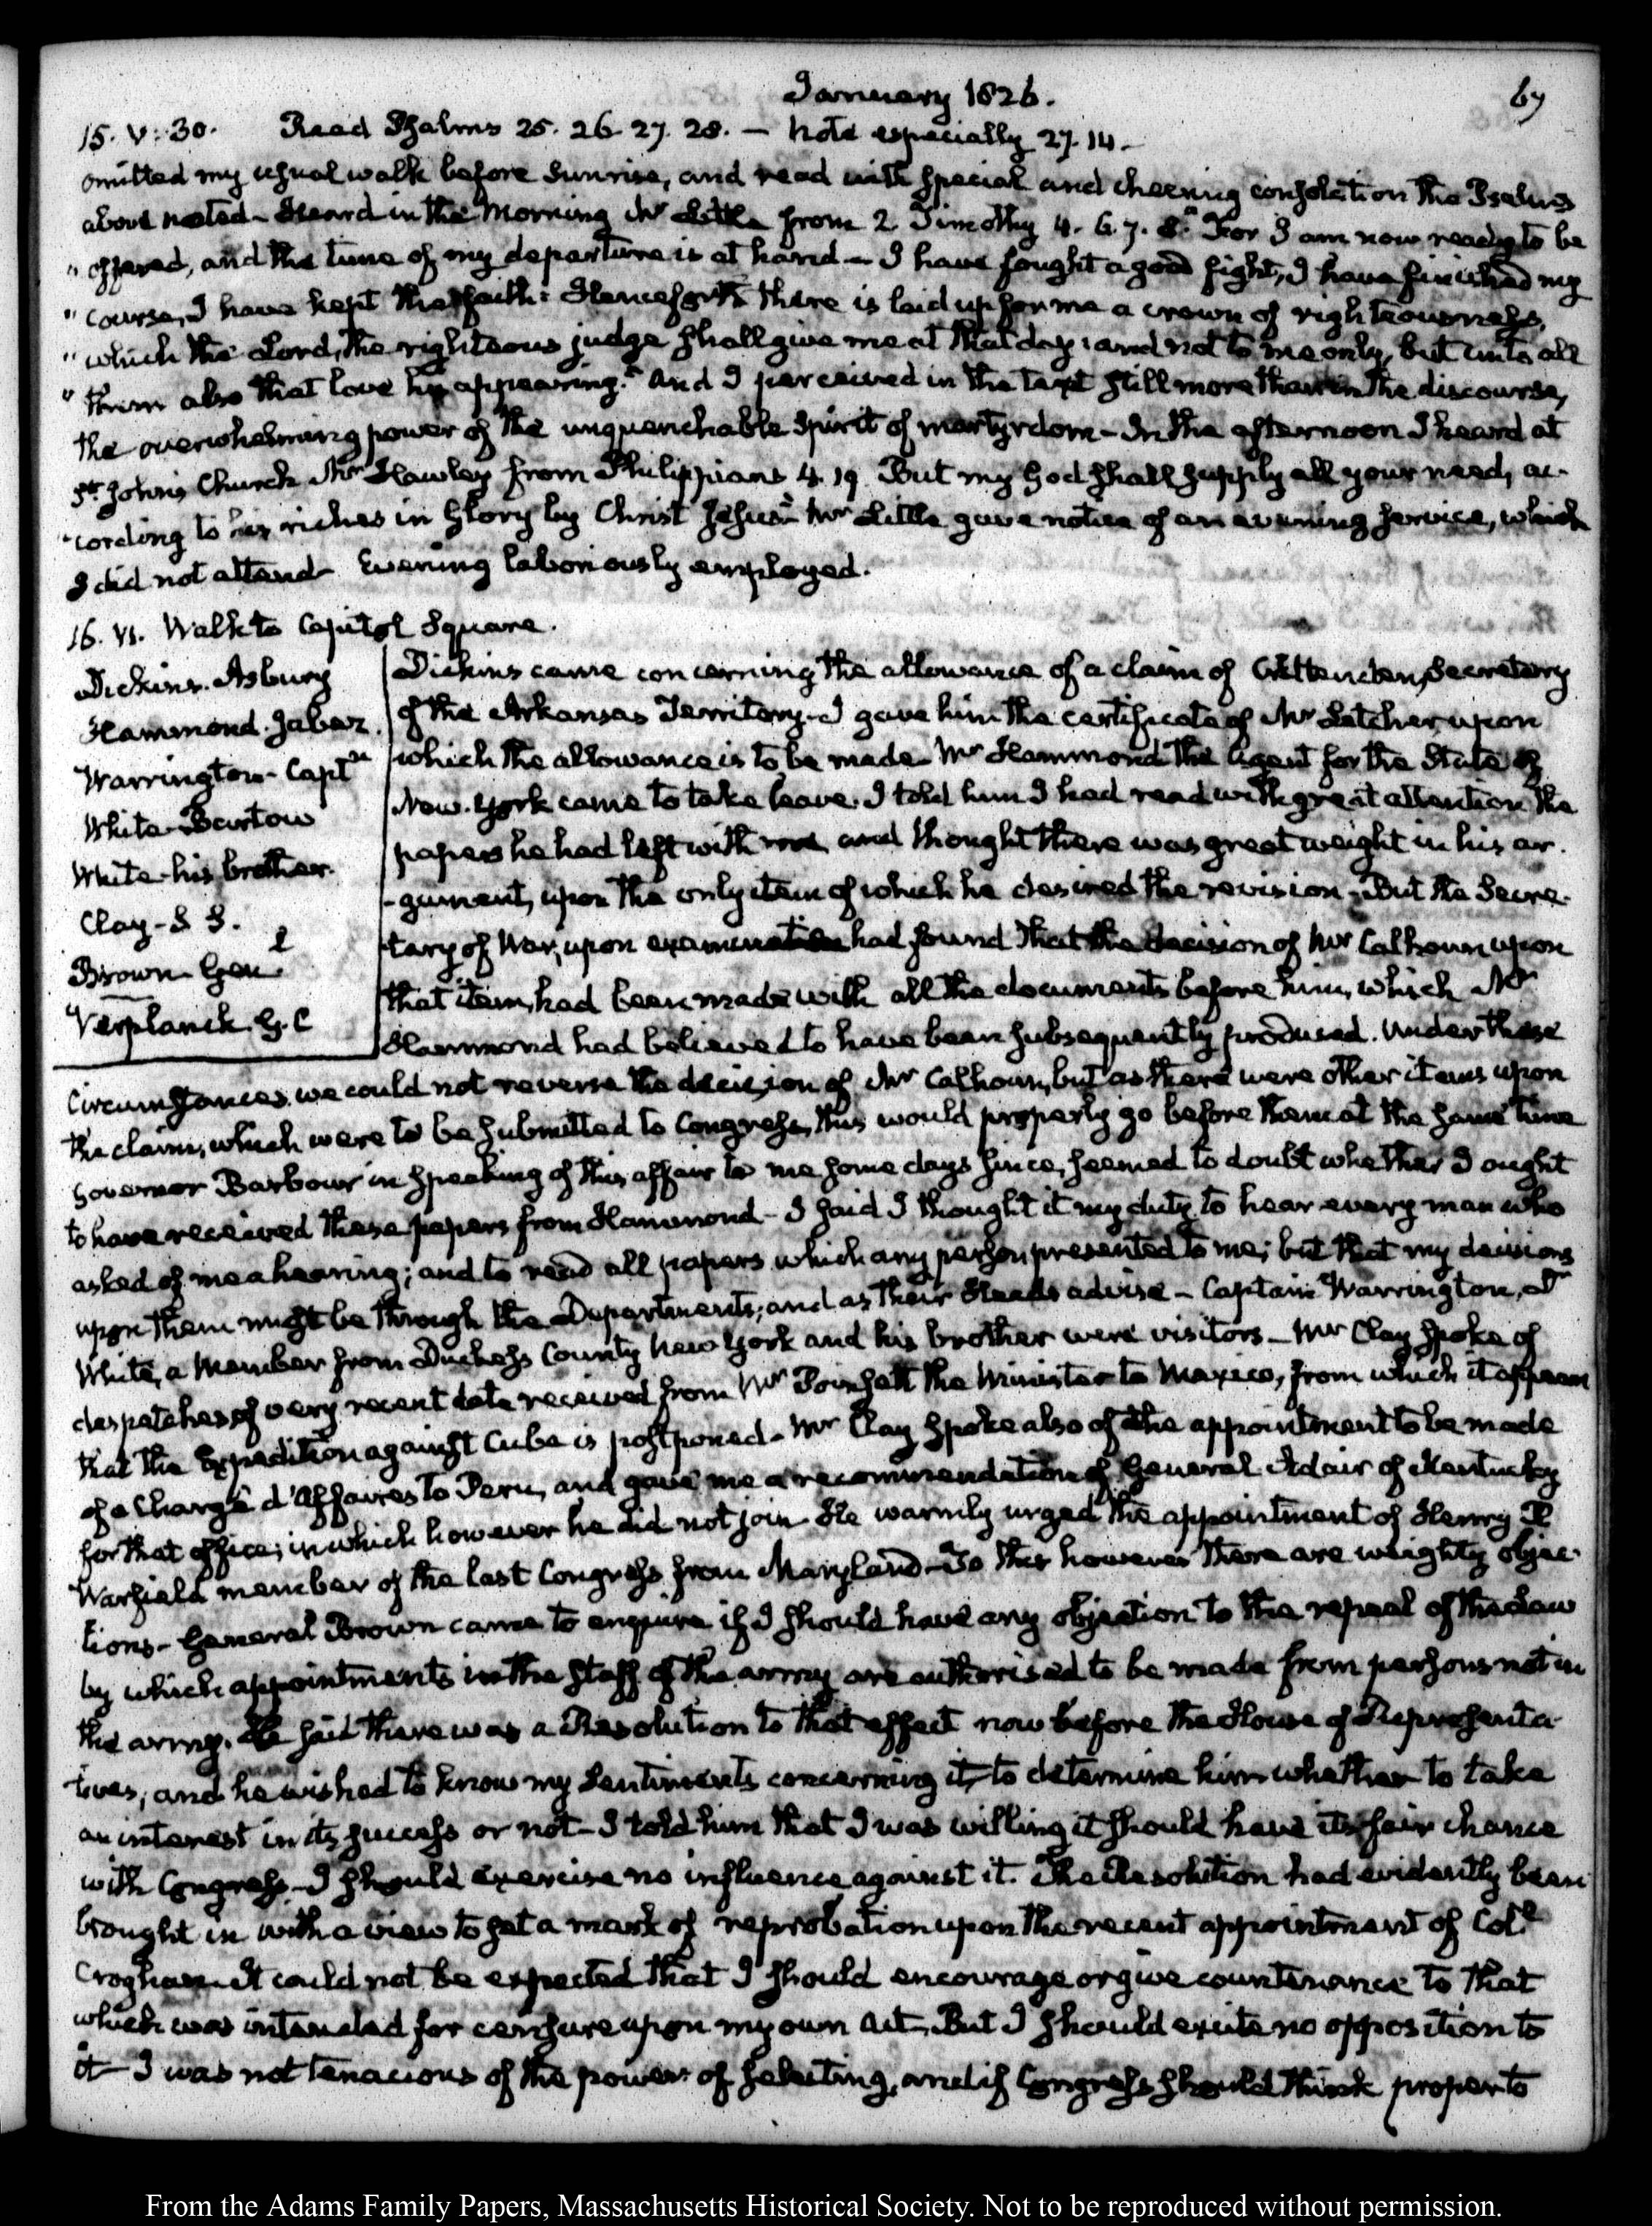 January 1826.
67
15. V:30. Read Psalms 25. 26. 27. 28. — note especially 27. 14.
omitted my usual walk before Sunrise, and read with special and cheering consolation the Psalms
above noted - Heard in the Morning Mr Little from 2. Timothy 4. 6. 7. 8. "For I am now ready to be
" offered, and the time of my departure is at hand - I have fought a good fight, I have finished my
" course, I have kept the faith: Henceforth there is laid up for me a crown of righteousness,
" which the Lord, the righteous judge shall give me at that day: and not to me only, but unto all
" them also that love his appearing." And I perceived in the text still more than in the discourse,
the overwhelming power of the unquenchable Spirit of martyrdom - In the afternoon I heard at
St. John's Church Mr Hawley from Philippians 4. 19. But my God shall supply all your need, ac-
"cording to his riches in Glory by Christ Jesus" Mr Little gave notice of an evening service, which
I did not attend - Evening laboriously employed.
16. VI. Walk to Capitol Square.
Dickins. Asbury
Hammond. Jabez.
Warrington - Captn
White Bartow
White - his brother.
Clay - S S.
Brown Genl
Verplanck. G. C
Dickins came concerning the allowance of a claim of Crittenden, Secretary
of the Arkansas Territory - I gave him the certificate of Mr Letcher, upon
which the allowance is to be made - Mr Hammond the Agent for the State of
New-York came to take leave. I told him I had read with great attention the
papers he had left with me, and thought there was great weight in his ar-
-gument, upon the only item of which he desired the revision - But the Secre-
tary of War, upon examination had found that the decision of Mr Calhoun upon
that item, had been made with all the documents before him, which Mr
Hammond had believed to have been subsequently produced. Under these
Circumstances we could not reverse the decision of Mr Calhoun, but as there were other items upon
the claim, which were to be submitted to Congress, this would properly go before them at the same time
Governor Barbour in speaking of this affair to me some days since, seemed to doubt whether I ought
to have received these papers from Hammond - I said I thought it my duty to hear every man who
asked of me a hearing; and to read all papers which any person presented to me; but that my decisions
upon them must be through the Departments, and as their Heads advise - Captain Warrington,
White, a Member from Duchess County New York and his brother were visitors - Mr Clay spoke of
despatches of very recent date received from Mr Poinsett the Minister to Mexico, from which it appears
that the Expedition against Cuba is postponed - Mr Clay spoke also of the appointment to be made
of a Chargé d'Affaires to Peru, and gave me a recommendation of General Adair of Kentucky
for that office; in which however he did not join - He warmly urged the appointment of Henry R
Warfield member of the last Congress from Maryland - To this however there are weighty objec-
tions - General Brown came to enquire if I should have any objection to the repeal of the Law
by which appointments in the Staff of the army are authorised to be made from persons not in
the army. He said there was a Resolution to that effect now before the House of Representa-
tives, and he wished to know my sentiments concerning it, to determine him whether to take
an interest in its success or not - I told him that I was willing it should have its fair chance
with Congress - I should exercise no influence against it. The Resolution had evidently been
brought in with a view to set a mark of reprobation upon the recent appointment of Coll
Croghan - It could not be expected that I should encourage or give countenance to that
which was intended for censure upon my own Act. But I should excite no opposition to
it - I was not tenacious of the power of selecting, and if Congress should think proper to
From the Adams Family Papers, Massachusetts Historical Society. Not to be reproduced without permission.